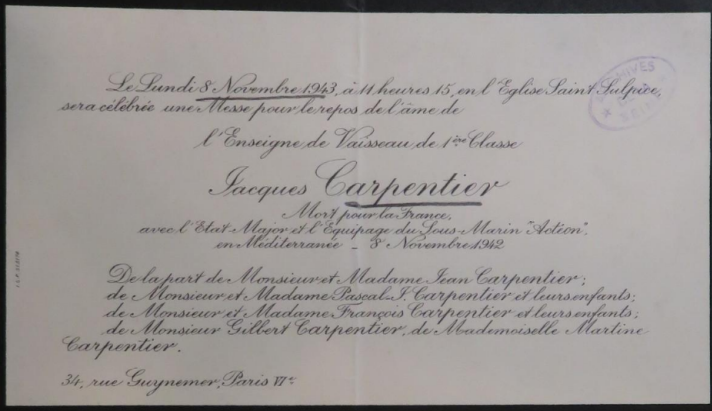 Le Lundi 8 Novembre 1943, à 11 heures 15, en l'Eglise Saint Sulpice,
sera célébrée une Messe pour le repos de l'âme de
l'Enseigne de Vaisseau de 1ère Classe
Jacques Carpentier
Mort pour la France,
avec l'Etat-Major et l'Equipage du Sous-Marin "Actéon".
en Méditerranée - 8 Novembre 1942
De la part de Monsieur et Madame Jean Carpentier;
de Monsieur et Madame Pascal-J. Carpentier et leurs enfants;
de Monsieur et Madame François Carpentier et leurs enfants;
de Monsieur Gilbert Carpentier, de Mademoiselle Martine
Carpentier.
34, rue Guynemer, Paris VIe
ARCHIVES